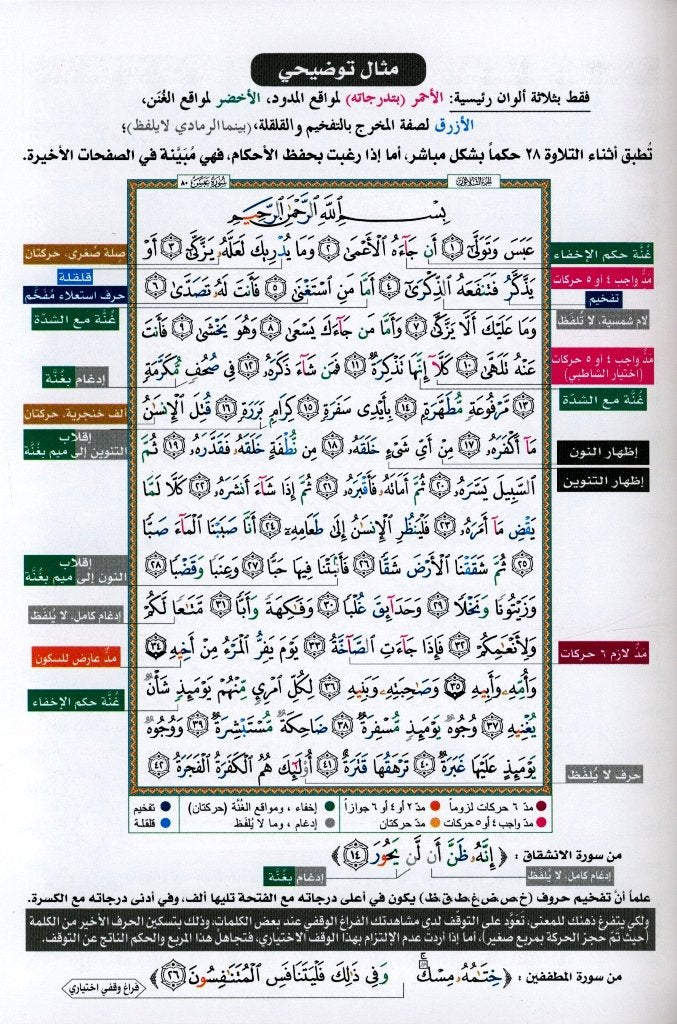 مثال توضيحي
فقط بثلاثة ألوان رئيسية: الأحمر (بتدرجاته) لمواقع المدود، الأخضر لمواقع الغُنَن،
الأزرق لصفة المخرج بالتفخيم والقلقلة، (بينما الرمادي لا يلفظ)؛
تُطبق أثناء التلاوة ٢٨ حكماً بشكل مباشر، أما إذا رغبت بحفظ الأحكام، فهي مُبَيَّنة في الصفحات الأخيرة.
سُورَةُ عَبَسَ ٨٠
بِسْمِ اللَّهِ الرَّحْمَٰنِ الرَّحِيمِ
عَبَسَ وَتَوَلَّىٰٓ ١ أَن جَآءَهُ الْأَعْمَىٰ ٢ وَمَا يُدْرِيكَ لَعَلَّهُۥ يَزَّكَّىٰٓ ٣ أَوْ
يَذَّكَّرُ فَتَنفَعَهُ الذِّكْرَىٰٓ ٤ أَمَّا مَنِ اسْتَغْنَىٰ ٥ فَأَنتَ لَهُۥ تَصَدَّىٰ ٦
وَمَا عَلَيْكَ أَلَّا يَزَّكَّىٰ ٧ وَأَمَّا مَن جَآءَكَ يَسْعَىٰ ٨ وَهُوَ يَخْشَىٰ ٩ فَأَنتَ
عَنْهُ تَلَهَّىٰ ١٠ كَلَّآ إِنَّهَا تَذْكِرَةٌ ١١ فَمَن شَآءَ ذَكَرَهُۥ ١٢ فِي صُحُفٍ مُّكَرَّمَةٍ
١٣ مَّرْفُوعَةٍ مُّطَهَّرَةٍۭ ١٤ بِأَيْدِي سَفَرَةٍ ١٥ كِرَامٍۭ بَرَرَةٍ ١٦ قُتِلَ الْإِنسَٰنُ
مَآ أَكْفَرَهُۥ ١٧ مِنْ أَيِّ شَيْءٍ خَلَقَهُۥ ١٨ مِن نُّطْفَةٍ خَلَقَهُۥ فَقَدَّرَهُۥ ١٩ ثُمَّ
السَّبِيلَ يَسَّرَهُۥ ٢٠ ثُمَّ أَمَاتَهُۥ فَأَقْبَرَهُۥ ٢١ ثُمَّ إِذَا شَآءَ أَنشَرَهُۥ ٢٢ كَلَّا لَمَّا
يَقْضِ مَآ أَمَرَهُۥ ٢٣ فَلْيَنظُرِ الْإِنسَٰنُ إِلَىٰ طَعَامِهِۦٓ ٢٤ أَنَّا صَبَبْنَا الْمَآءَ صَبًّا
٢٥ ثُمَّ شَقَقْنَا الْأَرْضَ شَقًّا ٢٦ فَأَنۢبَتْنَا فِيهَا حَبًّا ٢٧ وَعِنَبًا وَقَضْبًا ٢٨
وَزَيْتُونًا وَنَخْلًا ٢٩ وَحَدَآئِقَ غُلْبًا ٣٠ وَفَٰكِهَةً وَأَبًّا ٣١ مَّتَٰعًا لَّكُمْ
وَلِأَنْعَٰمِكُمْ ٣٢ فَإِذَا جَآءَتِ الصَّآخَّةُ ٣٣ يَوْمَ يَفِرُّ الْمَرْءُ مِنْ أَخِيهِ ٣٤
وَأُمِّهِۦ وَأَبِيهِ ٣٥ وَصَٰحِبَتِهِۦ وَبَنِيهِ ٣٦ لِكُلِّ امْرِئٍ مِّنْهُمْ يَوْمَئِذٍ شَأْنٌ
يُغْنِيهِ ٣٧ وُجُوهٌ يَوْمَئِذٍ مُّسْفِرَةٌ ٣٨ ضَاحِكَةٌ مُّسْتَبْشِرَةٌ ٣٩ وَوُجُوهٌ
يَوْمَئِذٍ عَلَيْهَا غَبَرَةٌ ٤٠ تَرْهَقُهَا قَتَرَةٌ ٤١ أُولَٰٓئِكَ هُمُ الْكَفَرَةُ الْفَجَرَةُ ٤٢
غُنَّة حكم الإخفاء
مدّ واجب ٤ أو ٥ حركات
تفخيم
لام شمسية، لا تُلفَظ
مدّ واجب ٤ أو ٥ حركات
(اختيار الشاطبي)
غُنَّة مع الشدّة
إظهار النون
إظهار التنوين
مدّ لازم ٦ حركات
حرف لا يُلفَظ
صلة صُغرى، حركتان
قلقلة
حرف استعلاء مُفَخَّم
غُنَّة مع الشدّة
إدغام بغُنَّة
ألف خنجرية، حركتان
إقلاب
التنوين إلى ميم بغُنَّة
إقلاب
النون إلى ميم بغُنَّة
إدغام كامل، لا يُلفَظ
مدّ عارض للسكون
غُنَّة حكم الإخفاء
مدّ ٦ حركات لزوماً مدّ ٢ أو ٤ أو ٦ جوازاً إخفاء، ومواقع الغُنَّة (حركتان) تفخيم
مدّ واجب ٤ أو ٥ حركات مدّ حركتان إدغام، وما لا يُلفَظ قلقلة
من سورة الانشقاق : ﴿ إِنَّهُۥ ظَنَّ أَن لَّن يَحُورَ ١٤ ﴾
إدغام كامل، لا يُلفَظ
إدغام بغُنَّة
علماً أنّ تفخيم حروف (خ.ص.ض.غ.ط.ق.ظ) يكون في أعلى درجاته مع الفتحة تليها ألف، وفي أدنى درجاته مع الكسرة.
ولكي يتفرغ ذهنك للمعنى، تَعَوَّد على التوقف لدى مشاهدتك الفراغ الوقفي عند بعض الكلمات، وذلك بتسكين الحرف الأخير من الكلمة
(حيث تمّ حجز الحركة بمربع صغير)، أما إذا أردت عدم الإلتزام بهذا الوقف الاختياري، فتجاهلْ هذا المربع والحكم الناتج عن التوقف.
من سورة المطففين : ﴿ خِتَٰمُهُۥ مِسْكٌ ۚ وَفِي ذَٰلِكَ فَلْيَتَنَافَسِ الْمُتَنَٰفِسُونَ ٢٦ ﴾
فراغ وقفي اختياري